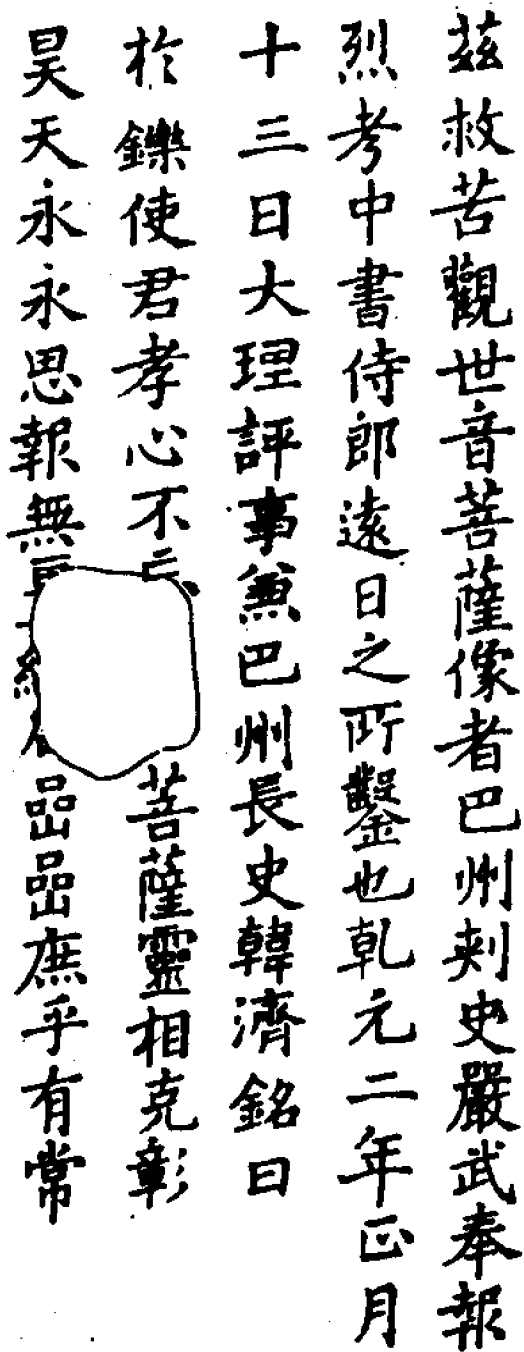 茲救苦觀世音菩薩像者巴州刾史嚴武奉報
烈考中書侍郎遠日之所鑿也乹元二年正月
十三日大理評事兼巴州長史韓濟銘曰
於鑠使君孝心不菩薩靈相克彰
昊天永永思報無嵒嵒庶乎有常